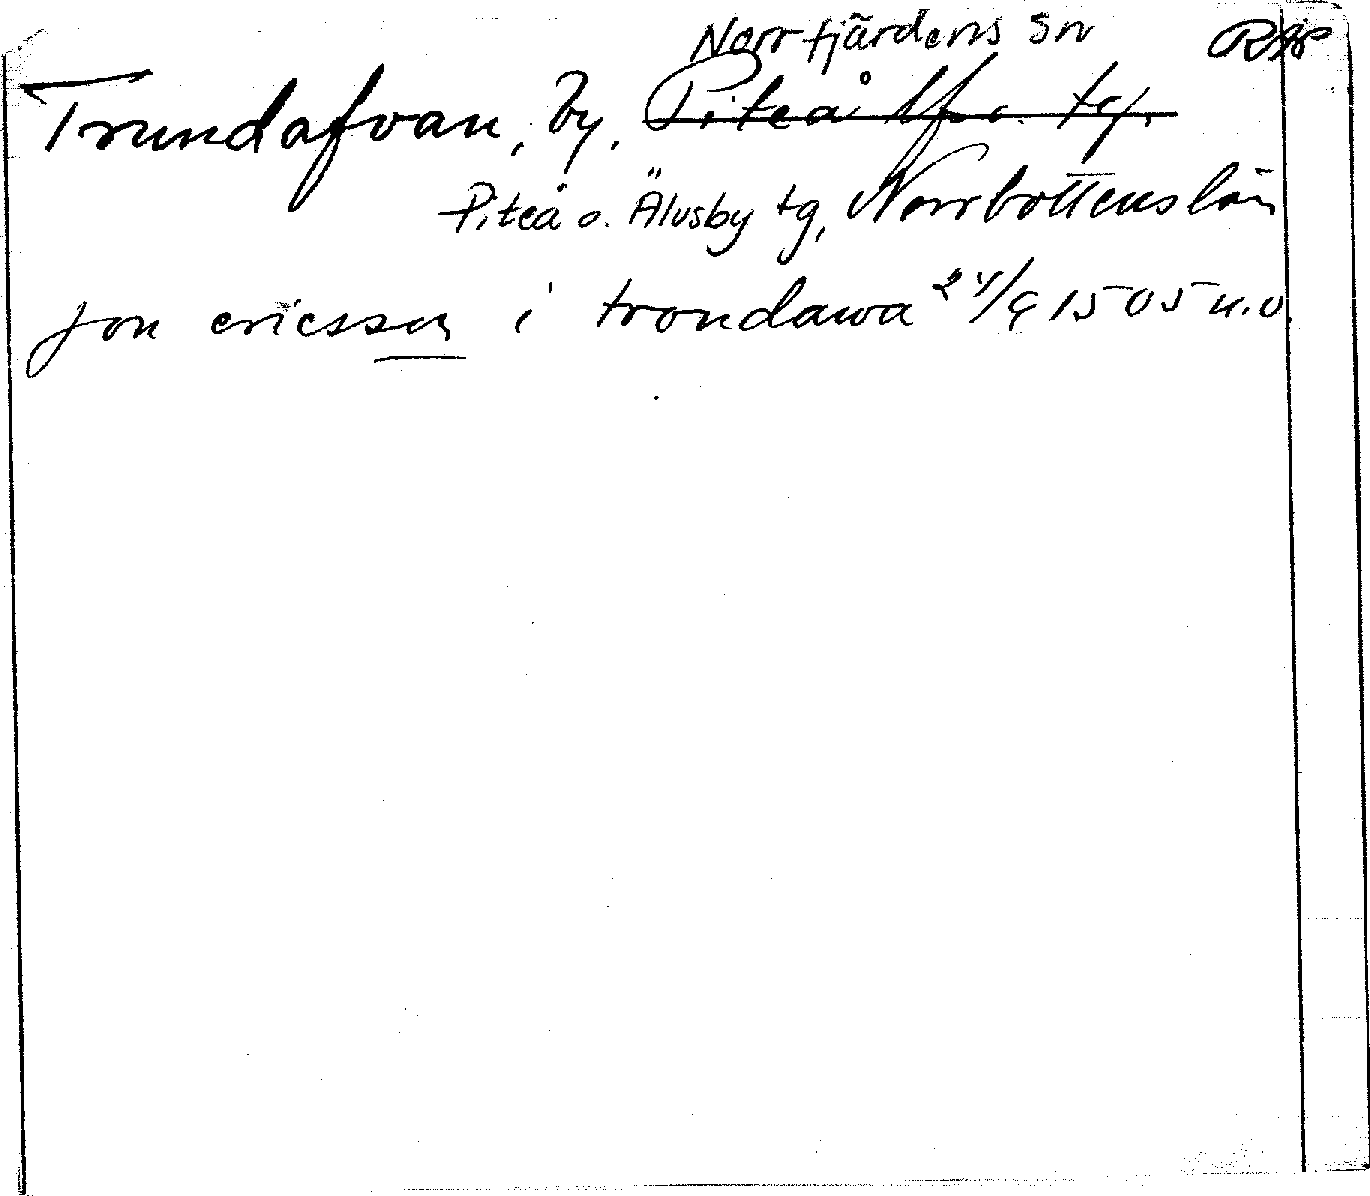 Norrfjärdens Sn RAp
Trundafvan, by, Piteå lfs. tg.
Piteå o. Älvsby tg, Norrbottens län
jon ericsson i trondawa 24/9 1505 u.o.